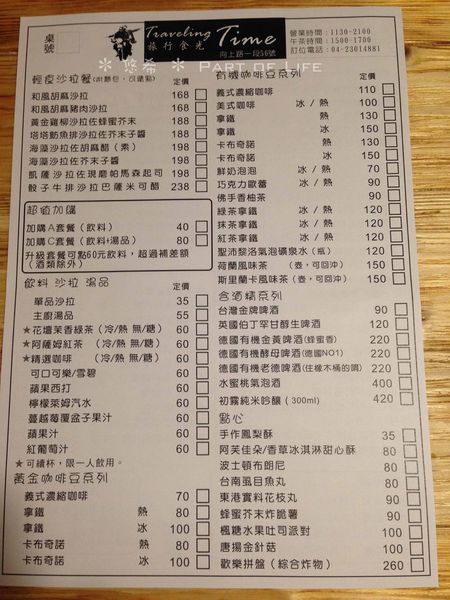 桌號
Traveling Time
旅行食光
向上路一段56號
營業時間：1130-2100
午茶時間：1500-1700
訂位電話：04-23014881
＊ 悠希 ＊ PART OF LIFE
輕食沙拉餐(附麵包,可續點) 定價
和風胡麻沙拉 168
和風胡麻豬肉沙拉 188
黃金雞柳沙拉佐蜂蜜芥末 188
塔塔魴魚排沙拉佐芥末子醬 188
海藻沙拉佐胡麻醋（素） 188
海藻沙拉佐芥末子醬 188
凱薩沙拉佐現磨帕馬森起司 188
骰子牛排沙拉巴薩米可醋 238
超值加購
加購A套餐（飲料） 40
加購C套餐（飲料+湯品） 80
升級套餐可點60元飲料，超過補差額
（酒類除外）
飲料 沙拉 湯品 定價
單品沙拉 35
主廚湯品 55
★花壇茉香綠茶（冷/熱 無/糖） 60
★阿薩姆紅茶（冷/熱 無/糖） 60
★精選咖啡 （冷/熱 無/糖） 60
可口可樂/雪碧 60
蘋果西打 60
檸檬萊姆汽水 60
蔓越莓覆盆子果汁 60
蘋果汁 60
紅葡萄汁 60
★可續杯，限一人飲用。
黃金咖啡豆系列 定價
義式濃縮咖啡 70
拿鐵 熱 80
拿鐵 冰 100
卡布奇諾 熱 80
卡布奇諾 冰 100
有機咖啡豆系列 定價
義式濃縮咖啡 110
美式咖啡 冰 / 熱 100
拿鐵 熱 130
拿鐵 冰 150
卡布奇諾 熱 130
卡布奇諾 冰 150
鮮奶泡泡 冰 / 熱 70
巧克力歐蕾 冰 / 熱 90
佛手香柚茶 90
綠茶拿鐵 冰 / 熱 120
抹茶拿鐵 冰 / 熱 120
紅茶拿鐵 冰 / 熱 120
聖沛黎洛氣泡礦泉水（瓶） 120
荷蘭風味茶 （壺，可回沖） 150
斯里蘭卡風味茶（壺，可回沖） 150
含酒精系列 定價
台灣金牌啤酒 90
英國伯丁罕甘醇生啤酒 220
德國有機金黃啤酒(蜂蜜香) 220
德國有機酵母啤酒(德國NO1) 220
德國有機老德啤酒(往橡木桶的唷) 220
水蜜桃氣泡酒 400
初霧純米吟釀（300ml） 420
點心 定價
手作鳳梨酥 35
阿芙佳朵/香草冰淇淋甜心酥 80
波士頓布朗尼 80
台南虱目魚丸 80
東港實料花枝丸 90
蜂蜜芥末炸脆薯 90
楓糖水果吐司派對 100
唐揚金針菇 100
歡樂拼盤（綜合炸物） 260